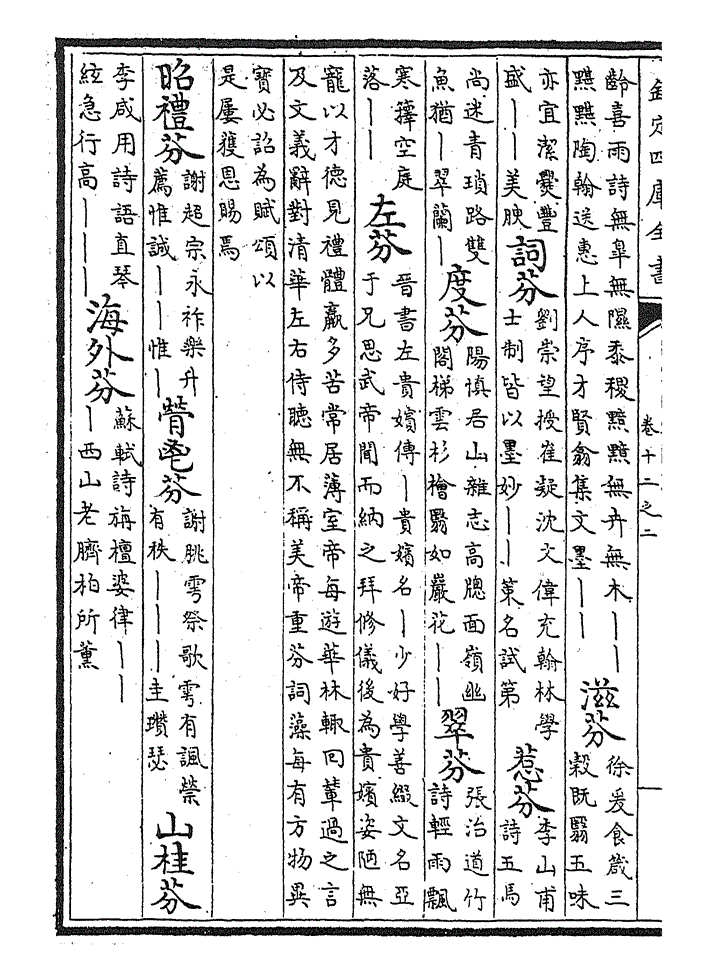 欽定四庫全書
卷十二之二
齡喜雨詩無臯無隰黍稷黯黯無卉無木――
黮黮陶翰送惠上人序才賢翕集文墨――
滋芬
徐爰食箴三
穀既翳五味
亦宜潔爨豐
盛――美腴
詞芬
劉崇望授崔凝沈文偉充翰林學
士制皆以墨妙――策名試第
惹芬
李山甫
詩五馬
尚迷青瑣路雙
魚猶―翠蘭―
度芬
陽慎居山雜志高牕面嶺幽
閣梯雲杉檜翳如巖花――
翠芬
張治道竹
詩輕雨飄
寒籜空庭
落――
左芬
晉書左貴嬪傳―貴嬪名―少好學善綴文名亞
于兄思武帝聞而納之拜修儀後為貴嬪姿陋無
寵以才德見禮體羸多苦常居薄室帝每遊華林輙回輦過之言
及文義辭對清華左右侍聽無不稱美帝重芬詞藻每有方物異
寶必詔為賦頌以
是屢獲恩賜焉
昭禮芬
謝超宗永祚樂升
薦惟誠――惟―
膋鬯芬
謝朓雩祭歌雩有諷禜
有秩―――圭瓚瑟
山桂芬
李咸用詩語直琴
絃急行高―――
海外芬
蘇軾詩旃檀婆律――
―西山老臍柏所薰